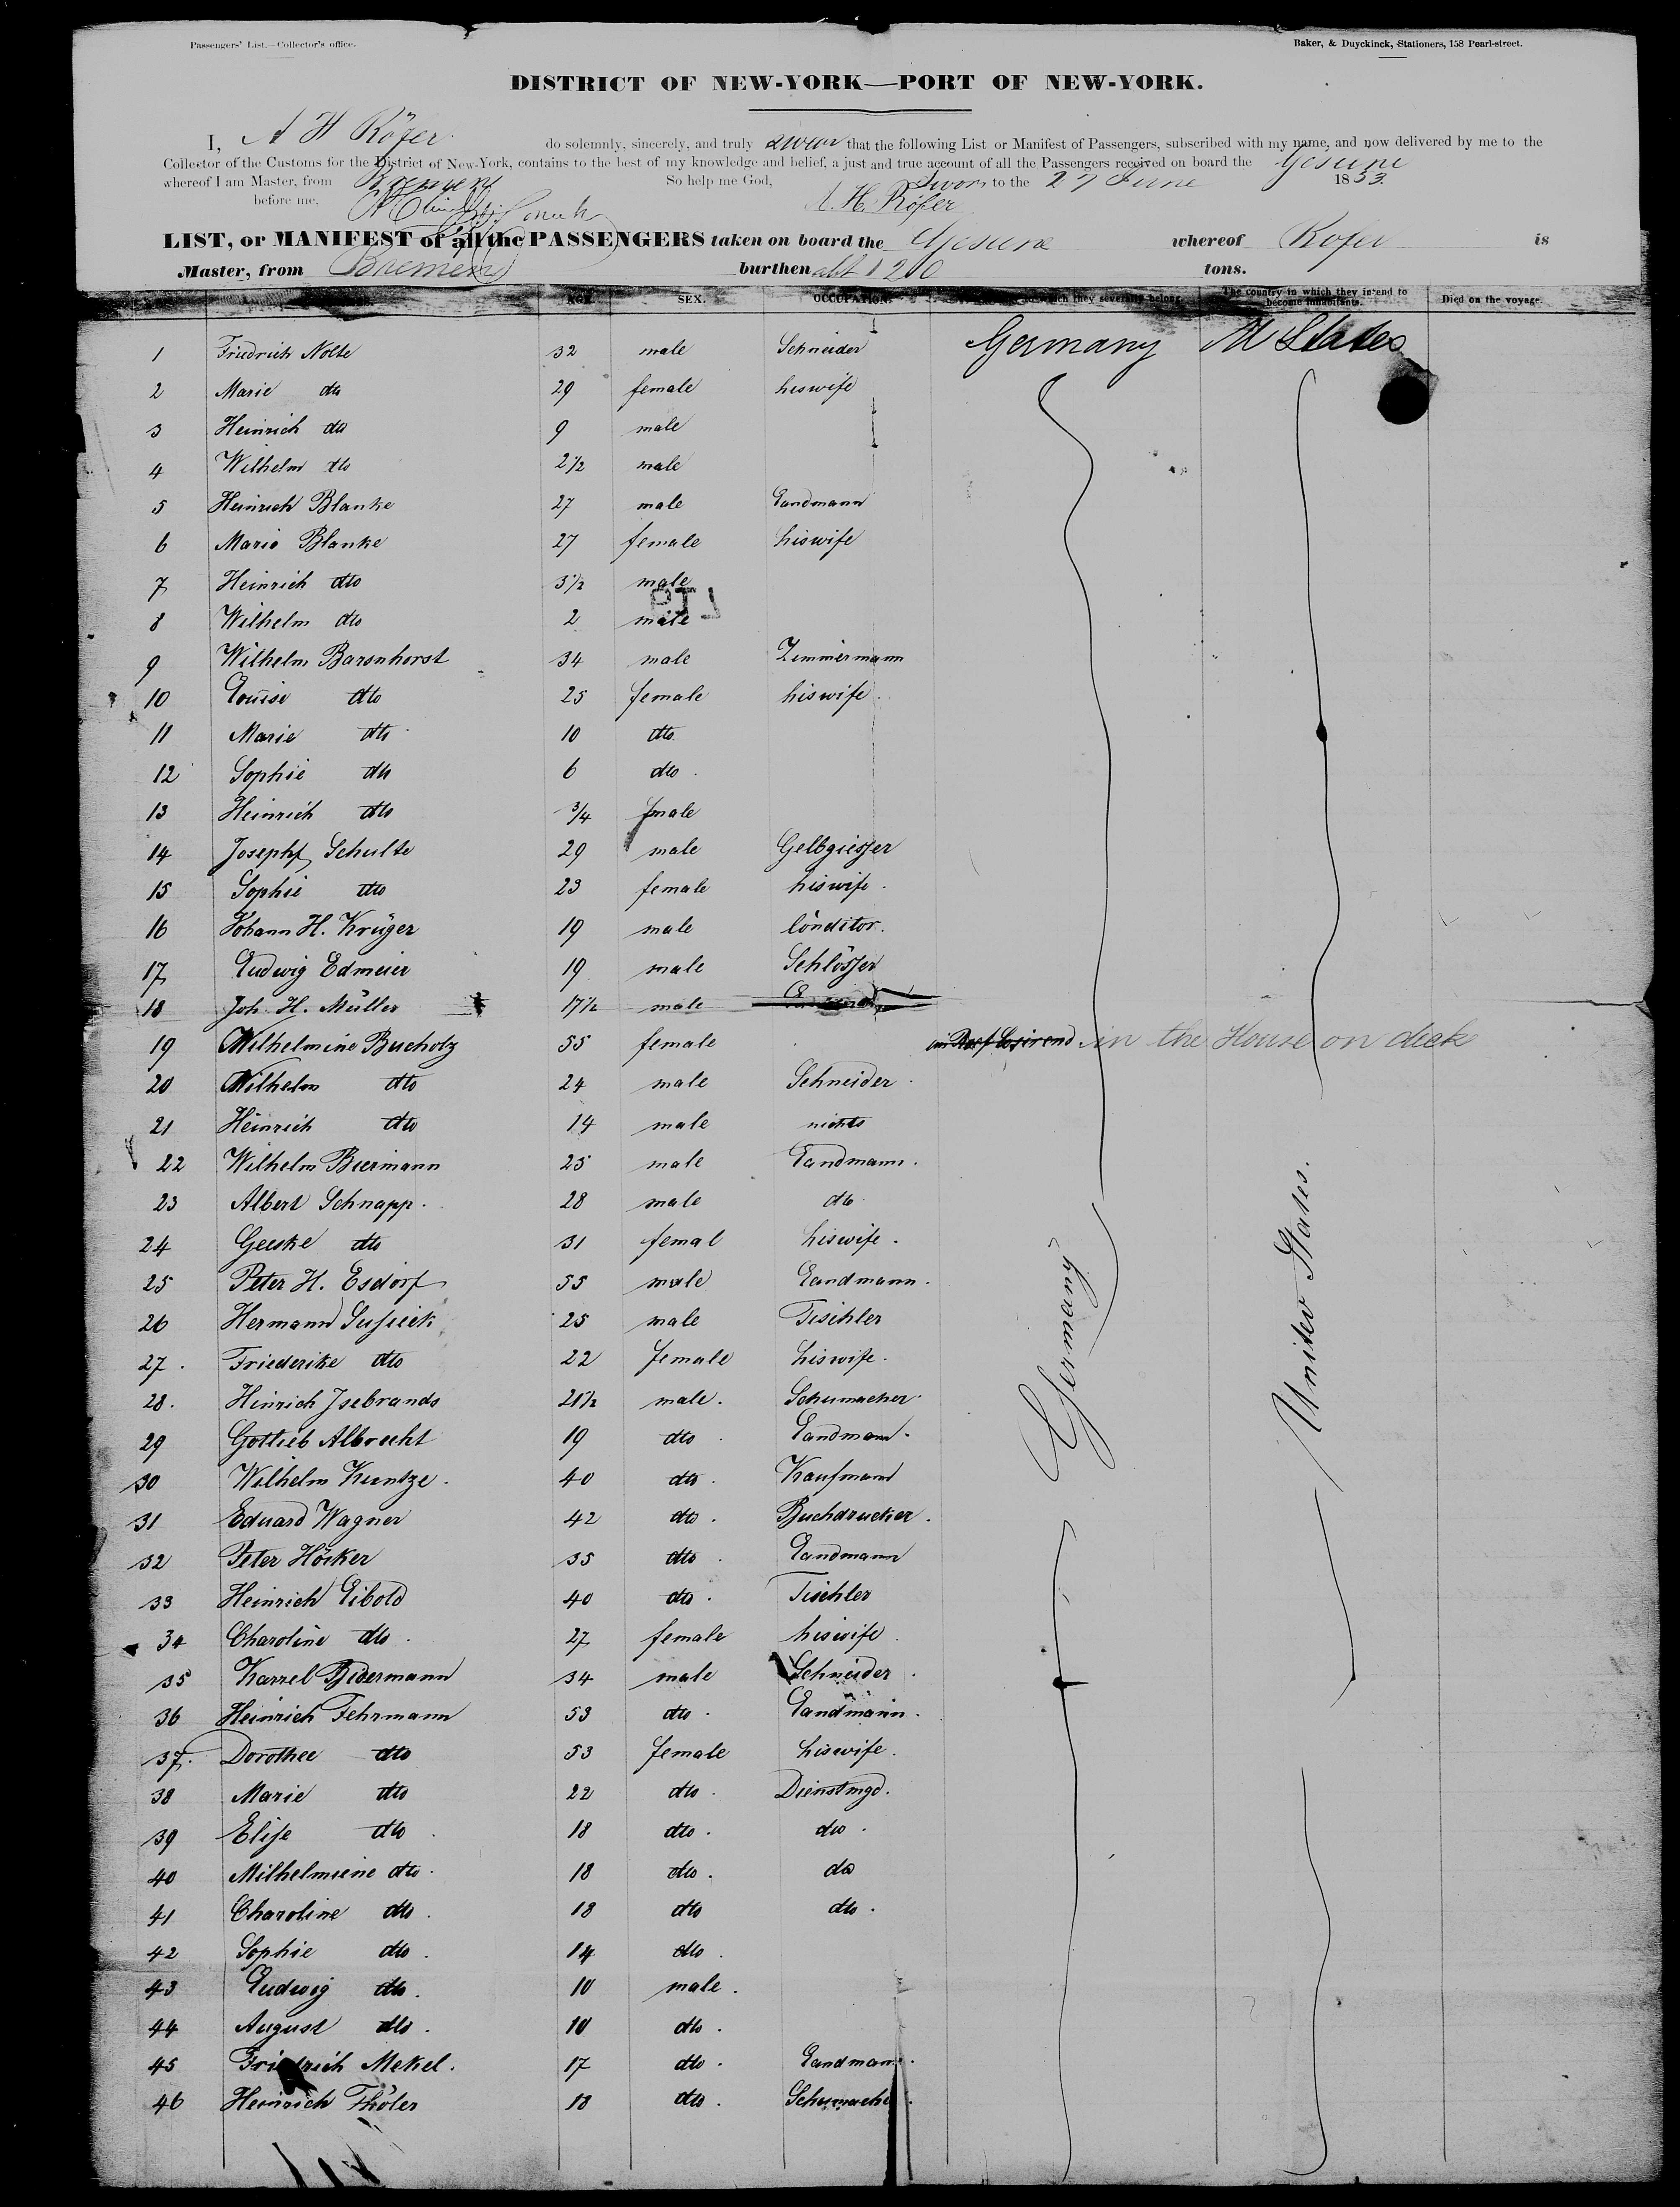 Passengers' List.—Collector's office.
Baker, & Duyckinck, Stationers, 158 Pearl-street.
DISTRICT OF NEW-YORK—PORT OF NEW-YORK.
I, A H Röfer do solemnly, sincerely, and truly swear that the following List or Manifest of Passengers, subscribed with my name, and now delivered by me to the
Collector of the Customs for the District of New-York, contains to the best of my knowledge and belief, a just and true account of all the Passengers received on board the Gesine
whereof I am Master, from Bremen So help me God, Sworn to the 27 June 1853.
before me, A. H. Röfer
LIST, or MANIFEST of all the PASSENGERS taken on board the Gesine whereof Rofer is
Master, from Bremen burthen tons.
AGE. SEX. OCCUPATION. to which they severally belong. The country in which they intend to become inhabitants. Died on the voyage.
1 Friedrich Nolte 32 male Schneider Germany U States
2 Marie dto 29 female his wife
3 Heinrich dto 9 male
4 Wilhelm dto 2 1/2 male
5 Heinrich Blanke 27 male Landmann
6 Marie Blanke 27 female his wife
7 Heinrich dto 3 1/2 male
8 Wilhelm dto 2 male
9 Wilhelm Baronhorst 34 male Zimmermann
10 Louise dto 25 female his wife
11 Marie dto 10 dto
12 Sophie dto 6 dto
13 Heinrich dto 3/4 male
14 Joseph Schulte 29 male Gelbgiesser
15 Sophie dto 23 female his wife
16 Johann H. Krüger 19 male Conditor
17 Ludwig Edmeier 19 male Schlosser
18 Joh. H. Müller 17 1/2 male
19 Wilhelmine Bucholz 55 female in the House on deck
20 Wilhelm dto 24 male Schneider
21 Heinrich dto 14 male nichts
22 Wilhelm Biermann 25 male Landmann
23 Albert Schnapp 28 male dto
24 Geeske dto 31 femal his wife
25 Peter H. Esdorf 55 male Landmann
26 Hermann 25 male Tischler
27 Friederike dto 22 female his wife
28 Hinrich Isebrands 21 1/2 male Schumacher
29 Gottlieb Albrecht 19 dto Landmann
30 Wilhelm Kuntze 40 dto Kaufmann
31 Eduard Wagner 42 dto Buchdrucker
32 Peter Höcker 35 dto Landmann
33 Heinrich Libold 40 dto Tischler
34 Charoline dto 27 female his wife
35 Karrel Bidermann 34 male Schneider
36 Heinrich Fehrmann 53 dto Landmann
37 Dorothee dto 53 female his wife
38 Marie dto 22 dto Dienstmgd.
39 Elise dto 18 dto dto
40 Wilhelmiene dto 18 dto do
41 Charoline dto 18 dto dto
42 Sophie dto 14 dto
43 Ludwig dto 10 male
44 August dto 10 dto
45 Friedrich Mekel 17 dto Landmann
46 Heinrich Thöler 18 dto Schumacher
Germany
United States.